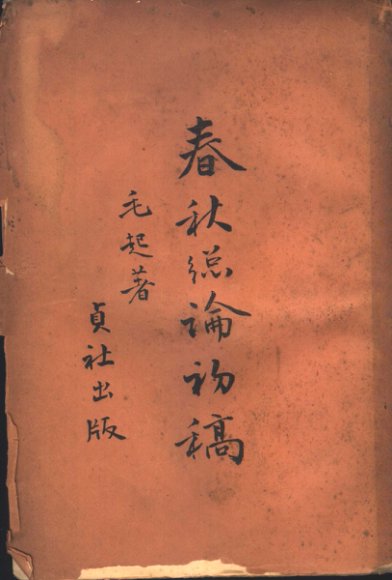 春秋總論初稿
毛起著
貞社出版